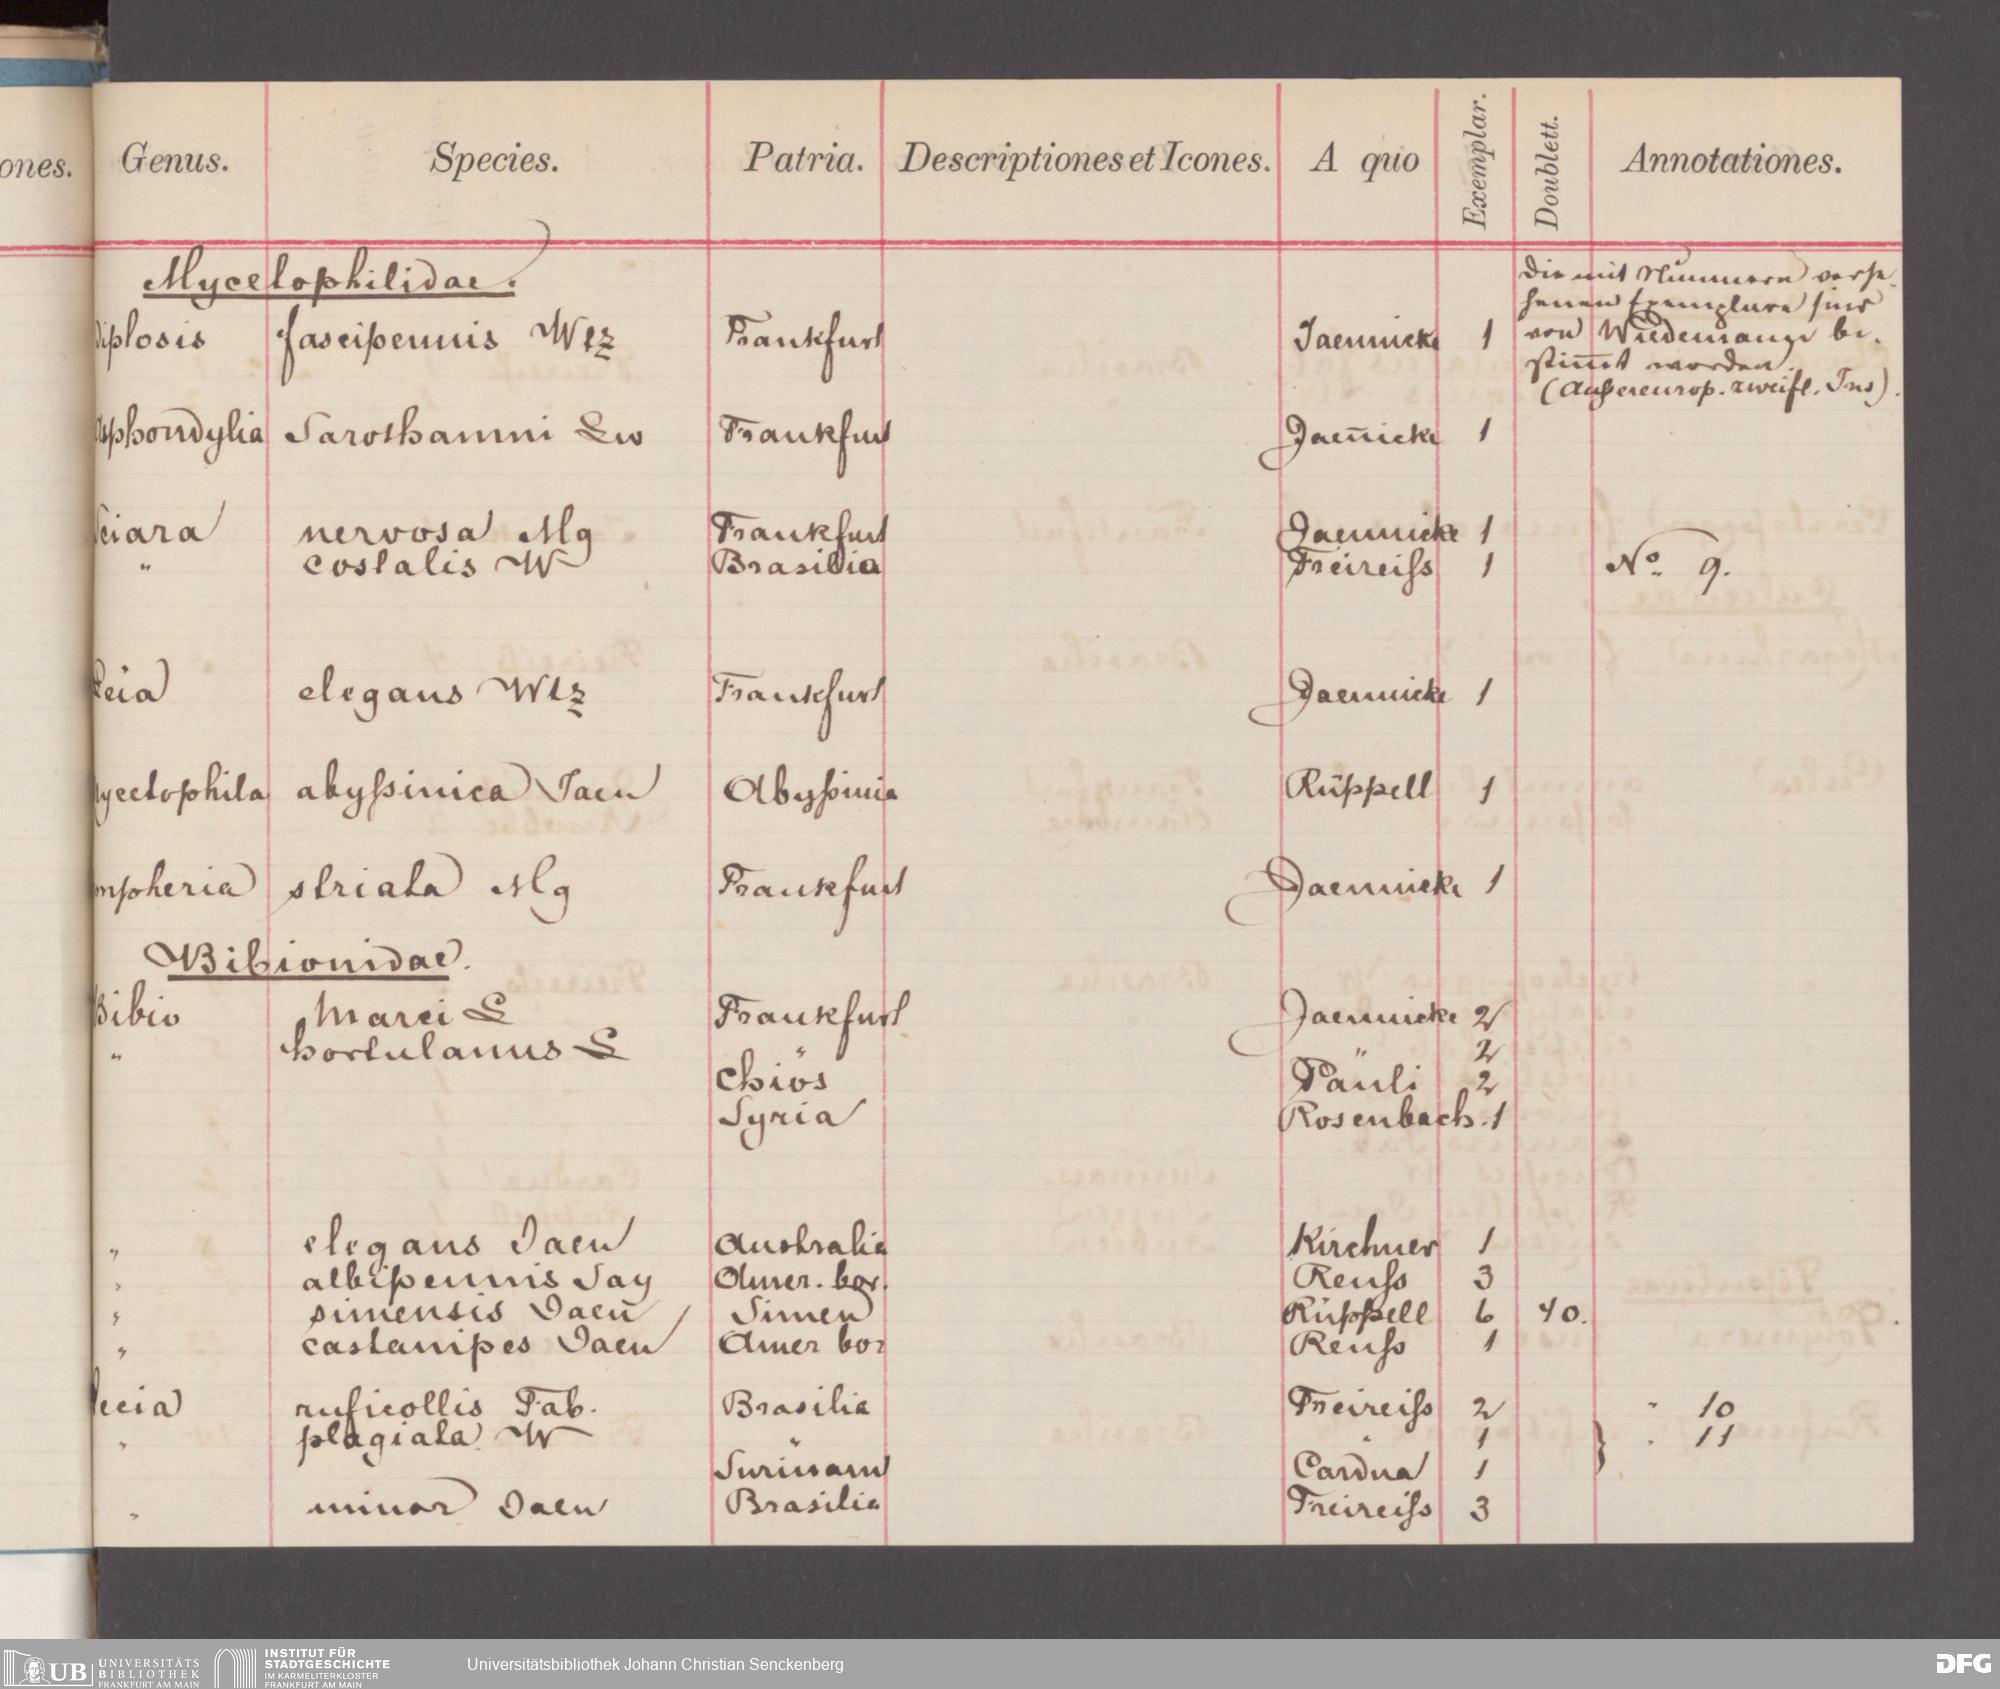 ones. Genus. Species. Patria. Descriptiones et Icones. A quo Exemplar. Doublett. Annotationes.
Mycetophilidae.
Die mit Nummern verse-
henen Exemplare sind
von Wiedemann be-
stim̄t worden
(Außereurop. zweifl. Ins).
diplosis fascipennis Wtz Frankfurt Jaennicke 1
Asphondylia Sarothamni Lw Frankfurt Jaen̄icke 1
Sciara nervosa Mg Frankfurt Jaennicke 1
" costalis W Brasilia Freireiss 1 No. 9.
Leia elegans Wtz Frankfurt Jaennicke 1
Mycetophila abyssinica Jaen Abyssinia Rüppell 1
mpheria striata Mg Frankfurt Jaennicke 1
Bibionidae.
Bibio Marci L Frankfurt Jaennicke 2
" hortulanus L " " 2
Chios Pauli 2
Syria Rosenbach. 1
" elegans Jaen Australia Kirchner 1
" albipennis Say Amer. bor. Reuss 3
" simensis Jaen̄ Simen Rüppell 6 40.
" castanipes Jaen Amer bor Reuss 1
lecia ruficollis Fab. Brasilia Freireiss 2 " 10
" plagiata W " " 1 " 11
Surinam Cardua 1
" minor Jaen Brasilia Freireiss 3
UB UNIVERSITÄTS
BIBLIOTHEK
FRANKFURT AM MAIN
INSTITUT FÜR
STADTGESCHICHTE
IM KARMELITERKLOSTER
FRANKFURT AM MAIN
Universitätsbibliothek Johann Christian Senckenberg
DFG